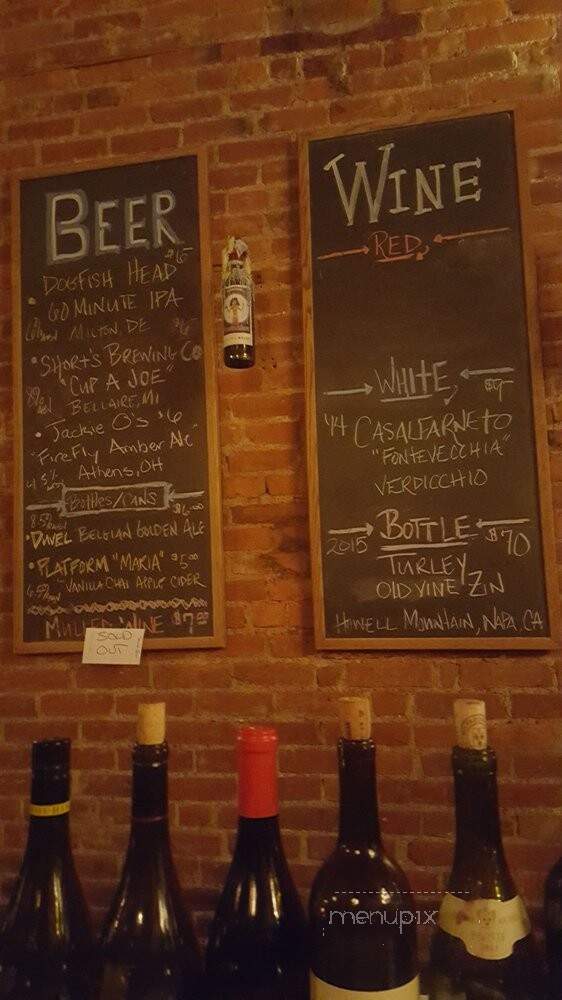 BEER
DOGFISH HEAD $6
• 60 MINUTE IPA
MILTON, DE
• SHORT'S BREWING CO
"CUP A JOE"
BELLAIRE, MI
• Jackie O's $6
"FireFly Amber Ale"
Athens, OH
Bottles/Cans
$6.00
• DUVEL BELGIAN GOLDEN ALE
• PLATFORM "MARIA" $5.00
VANILLA CHAI APPLE CIDER
MULLED WINE
SOLD
OUT
WINE
RED
WHITE $9
'14 CASALFARNETO
"FONTEVECCHIA"
VERDICCHIO
BOTTLE $70
2015
TURLEY
OLD VINE ZIN
HOWELL MOUNTAIN, NAPA, CA
menupix